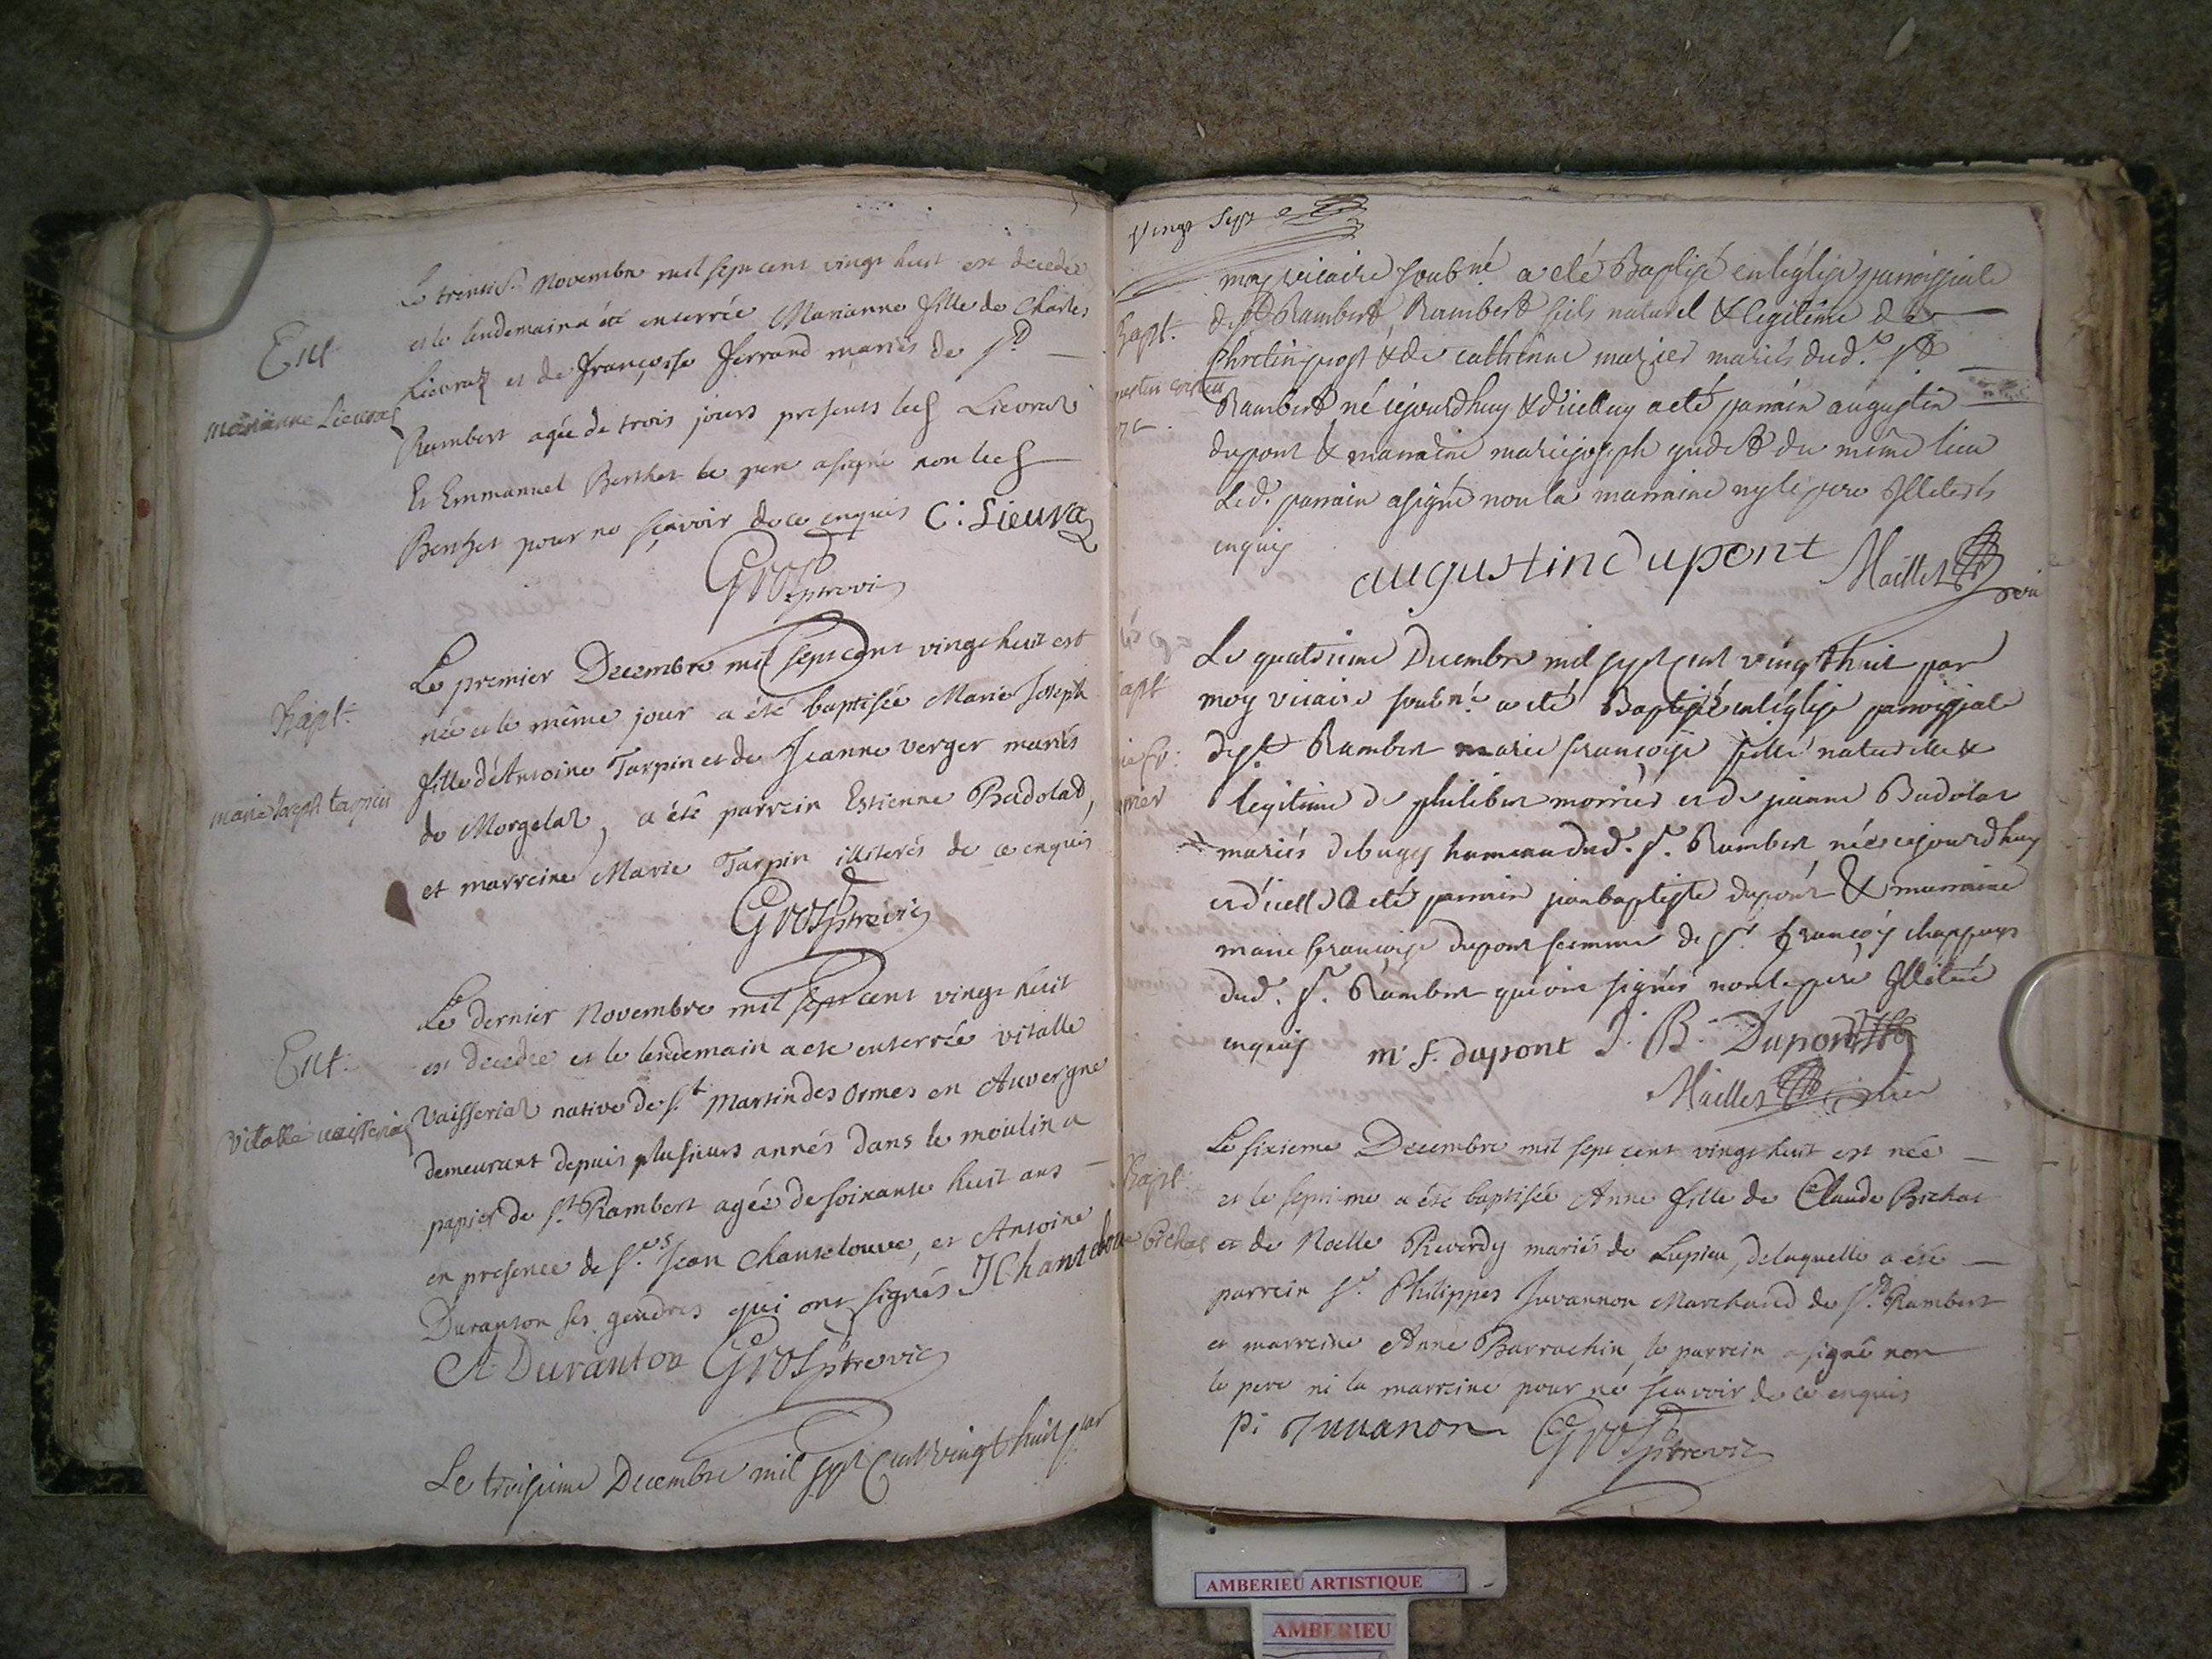 Le trentie. Novembre mil sept cent vingt huit est decedée
et le lendemain a été enterrée Marianne fille de Charles
Lievraz et de françoise ferrand mariés de St
Rambert agée de trois jours presents led Lievraz
Et Emmanuel Berthet le pere a signé non led
Berthet pour ne sçavoir de ce enquis C: Lieuraz
Ent
marianne Lieuraz
Gros ptre vic
Le premier Decembre mil sept cent vingt huit est
née et le même jour a été baptisée Marie Joseph
fille d'Antoine Tarpin et de Jeanne Verger mariés
de Morgelaz, a été parrein Estienne Badolat,
et marreine Marie Tarpin illiterés de ce enquis
Bapt.
marie Joseph tarpin
Gros ptre vic
Le dernier Novembre mil sept cent vingt huit
est decedee et le lendemain a ete enterrée vitalle
Vaisseriaz native de St Martin des Ormes en Auvergne
demeurant depuis plusieurs annés dans le moulin a
papier de St Rambert agée de soixante huit ans
en presence de Srs Jean Chantelouve, et Antoine
Duranton ses gendres qui ont signés J Chanteloue
A Duranton Gros ptre vic
Ent.
Vitalle vaisseriaz
Le troisieme Decembre mil sept cent vingt huit par
Vingt sept
moy vicaire soubné. a eté Baptisé en leglise parroissiale
de St Rambert Rambert fils naturel & legitime de
Chretin & de catherine mazier mariés dud. St
Rambert né cejourdhuy & d'icelluy a eté parrain augustin
dupont & marraine marie joseph du même lieu
Led. parrain a signé non la marraine ny le pere Illeterés
enquis
Bapt.
augustin dupont Maillet
Le quatrieme Decembre mil sept cent vingt huit par
moy vicaire soubné. a eté Baptisé en léglise parroissiale
de St. Rambert marie françoise fille naturelle &
legitime de philibert morrier et de jeanne Badolat
mariés de bugey hameau dud. St. Rambert née cejourdhuy
et d'icelle a eté parrain jean baptiste dupont & marraine
marie françoise dupont femme de Sr. françois chappuys
dud. St. Rambert qui ont signés non le pere Illiteré
enquis m. f. dupont J. B. Dupont
Maillet vicaire
Le sixieme Decembre mil sept cent vingt huit est née
et le septieme a été baptisée Anne fille de Claude Bichat
et de Noelle Reverdy mariés de Lupieu, de laquelle a été
parrein Sr. Philippes Juvannon Marchand de St Rambert
et marreine Anne Barrachin, le parrein a signé non
le pere ni la marreine pour ne sçavoir de ce enquis
Bapt
bichat
P: Juuanon Gros ptre vic
AMBERIEU ARTISTIQUE
AMBERIEU